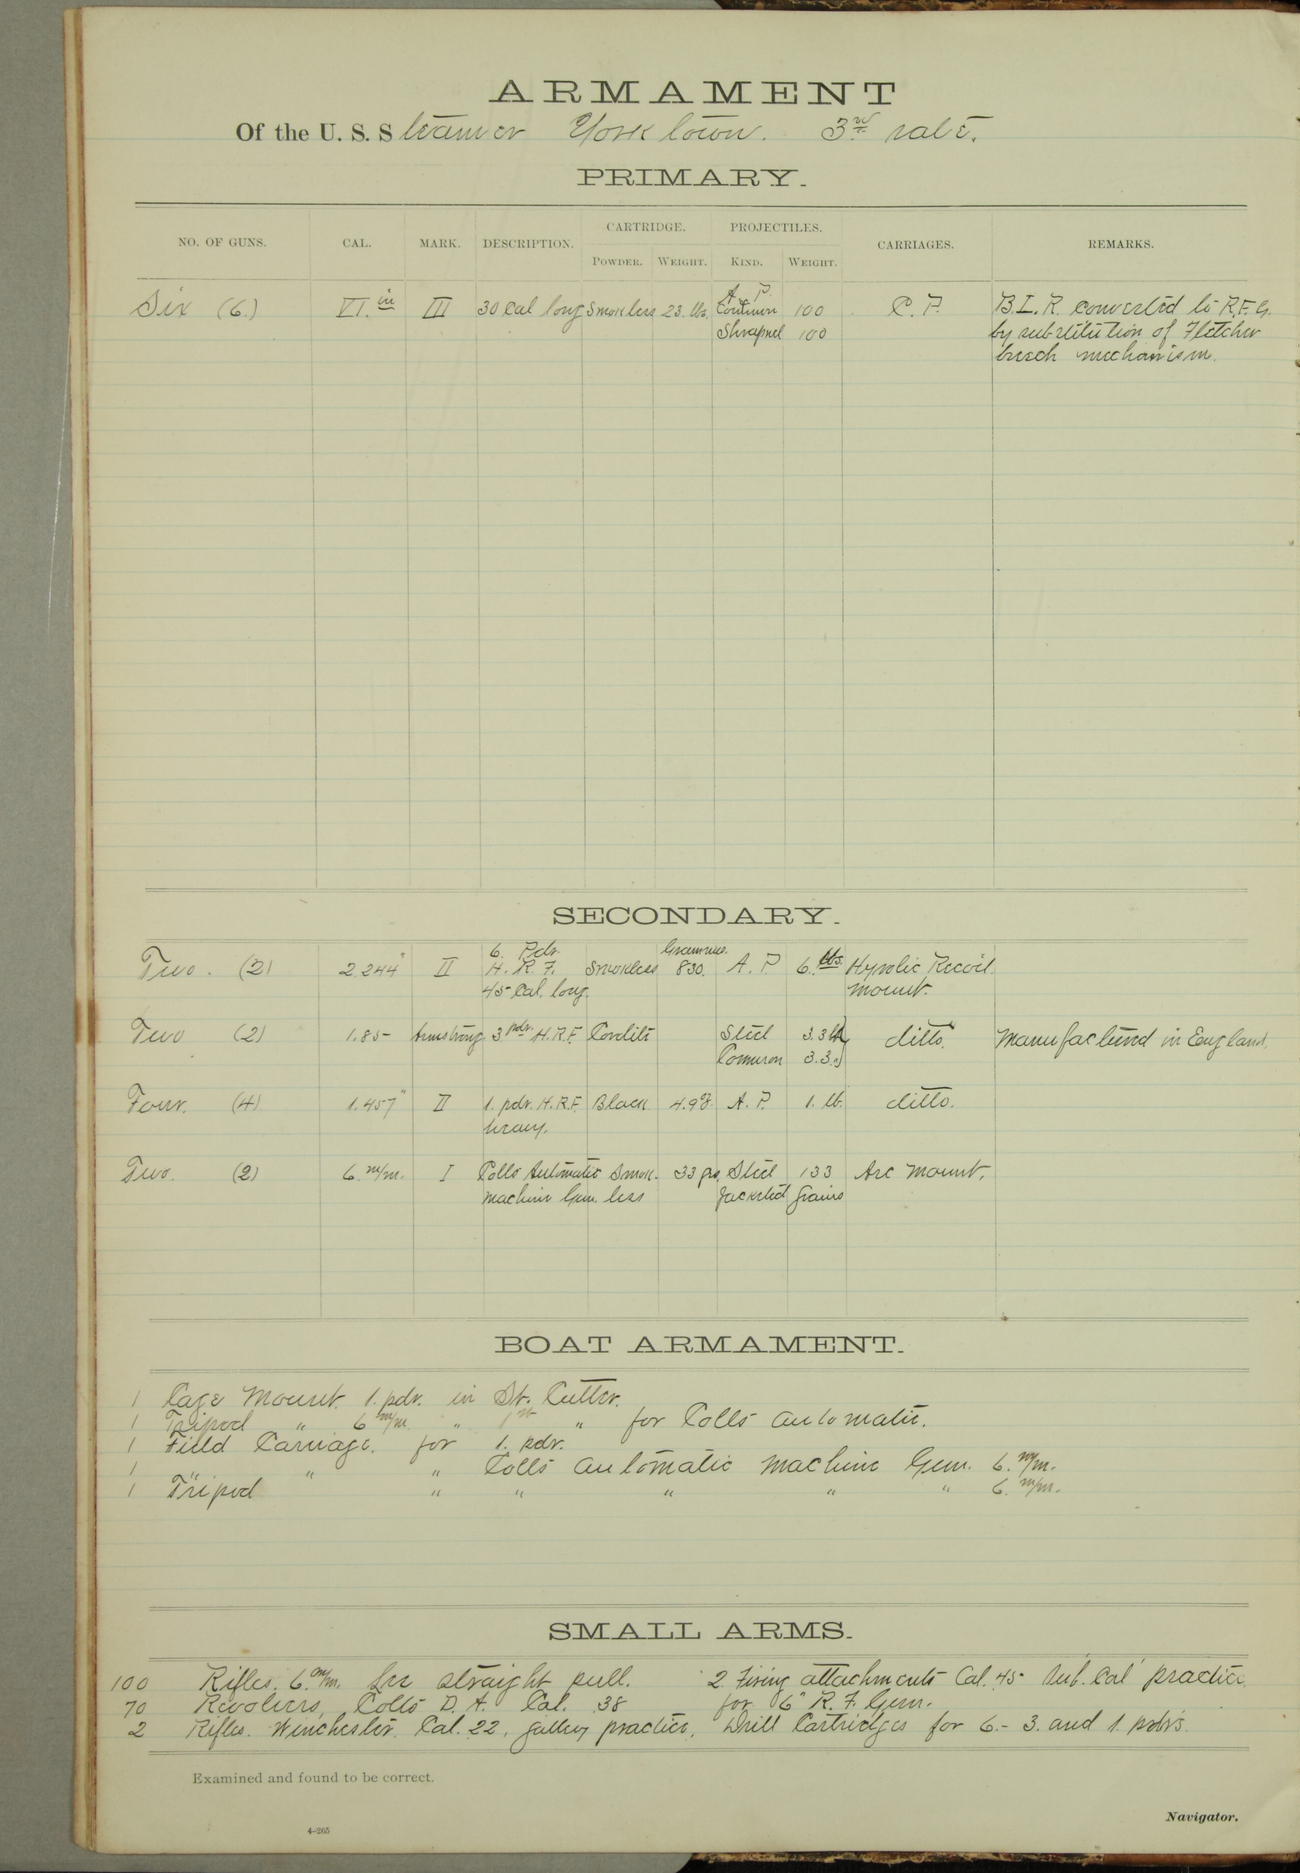 ARMAMENT
Of the U. S. Steamer Yorktown. 3rd rate.
PRIMARY.
NO. OF GUNS. CAL. MARK. DESCRIPTION. CARTRIDGE. PROJECTILES. CARRIAGES. REMARKS.
POWDER. WEIGHT. KIND. WEIGHT.
A. P.
Six (6.) VI. in III 30 Cal long Smokless 23. lbs. Common 100 C. P. B.L.R. converted to R.F.G.
Shrapnel 100 by substitution of Fletcher
breech mechanism.
SECONDARY.
6. Pdr. Grammes.
Two. (2) 2.244" II H. R. F. Smokless 830. A. P 6. lbs. Hyrolic Recoil
45 Cal. long. mount.
Two (2) 1.85 Armstrong 3 pdr. H.R.F. Cordite Steel 3.3 lb ditto. Manufactured in England.
Common 3.3 "
Four. (4) 1.457" II 1. pdr. H.R.F. Black 4.9 oz A. P. 1. lb. ditto.
heavy.
Two. (2) 6. m/m. I Colts Automatic Smok- 33 grs. Steel 133 Arc Mount.
machine Gun. less Jacketed Grains
BOAT ARMAMENT.
1 Cage Mount. 1. pdr. in St. Cutter.
1 Tripod " 6 m/m. " 1st " for Colts automatic.
1 Field Carriage. for 1. pdr.
1 " " " Colts automatic machine Gun. 6. m/m.
1 Tripod " " " " " 6. m/m.
SMALL ARMS.
100 Rifles. 6. m/m. Lee straight pull. 2 Firing attachments Cal. 45 sub. Cal practice
70 Revolvers, Colts D. A. Cal. .38 for 6" R. F. Gun.
2 Rifles. Winchester. Cal. 22. gallery practice. Drill Cartridges for 6.- 3. and 1. pdrs.
Examined and found to be correct.
Navigator.
4-265